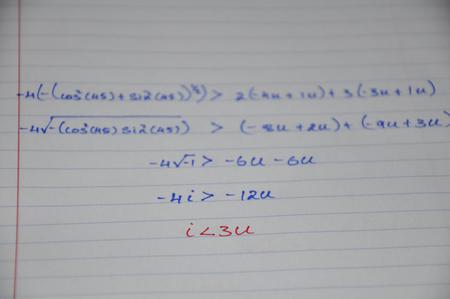 -4(-(cos²(45)+sin²(45))^½) > 2(-4u+1u)+3(-3u+1u)
-4√-(cos²(45) sin²(45)) > (-8u+2u)+(-9u+3u)
-4√-1 > -6u -6u
-4i > -12u
i<3u